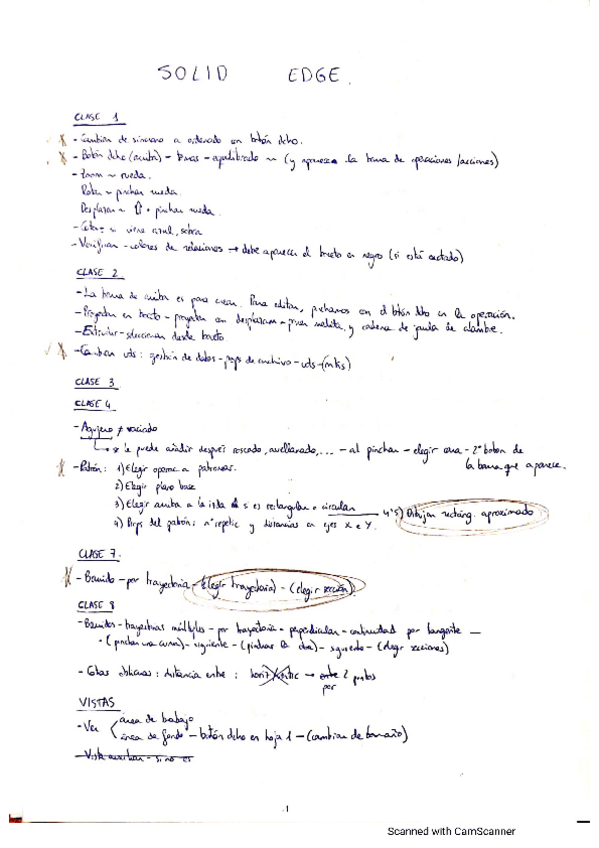 SOLID EDGE.
CLASE 1
- Cambiar de síncrono a ordenado en botón dcho.
- Botón dcho (arriba) - temas - equilibrado ~ (y aparece la barra de operaciones/acciones)
- Zoom ~ rueda.
Rotar ~ pinchar rueda.
Desplazar ~ ⇧ + pinchar rueda.
- Cota = ~ viene azul, sobra
- Verificar - colores de relaciones → debe aparecer el boceto en negro (si está acotado)
CLASE 2
- La barra de arriba es para crear. Para editar, pinchamos en el botón dcho en la operación.
- Proyectar en boceto - proyectar en desplazam - poner medida, y cadena de punta de alambre.
- Extruir - seleccionar desde boceto
- Cambiar uds: gestión de datos - props de archivo - uds - (mks)
CLASE 3
CLASE 4
- Agujero ≠ vaciado
se le puede añadir después roscado, avellanado,... - al pinchar - elegir cara - 2º botón de
la barra que aparece.
- Patrón: 1) Elegir operac a patronar.
2) Elegir plano base
3) Elegir arriba a la izda si es rectangular o circular 4'5) Dibujar rectáng. aproximado
4) Props del patrón: nº repetic y distancias en ejes X e Y.
CLASE 7.
- Barrido - por trayectoria - (elegir trayectoria) - (elegir sección).
CLASE 8
- Barridos - trayectorias múltiples - por trayectoria - perpendicular - continuidad por tangente -
- (pinchar una curva) - siguiente - (pinchar la otra) - siguiente - (elegir secciones)
- Cotas oblicuas: distancia entre: horiz/vertic → entre 2 puntos
por
VISTAS
- Ver área de trabajo
área de fondo - botón dcho en hoja 1 - (cambiar de tamaño)
- Vista auxiliar - si no es
1
Scanned with CamScanner